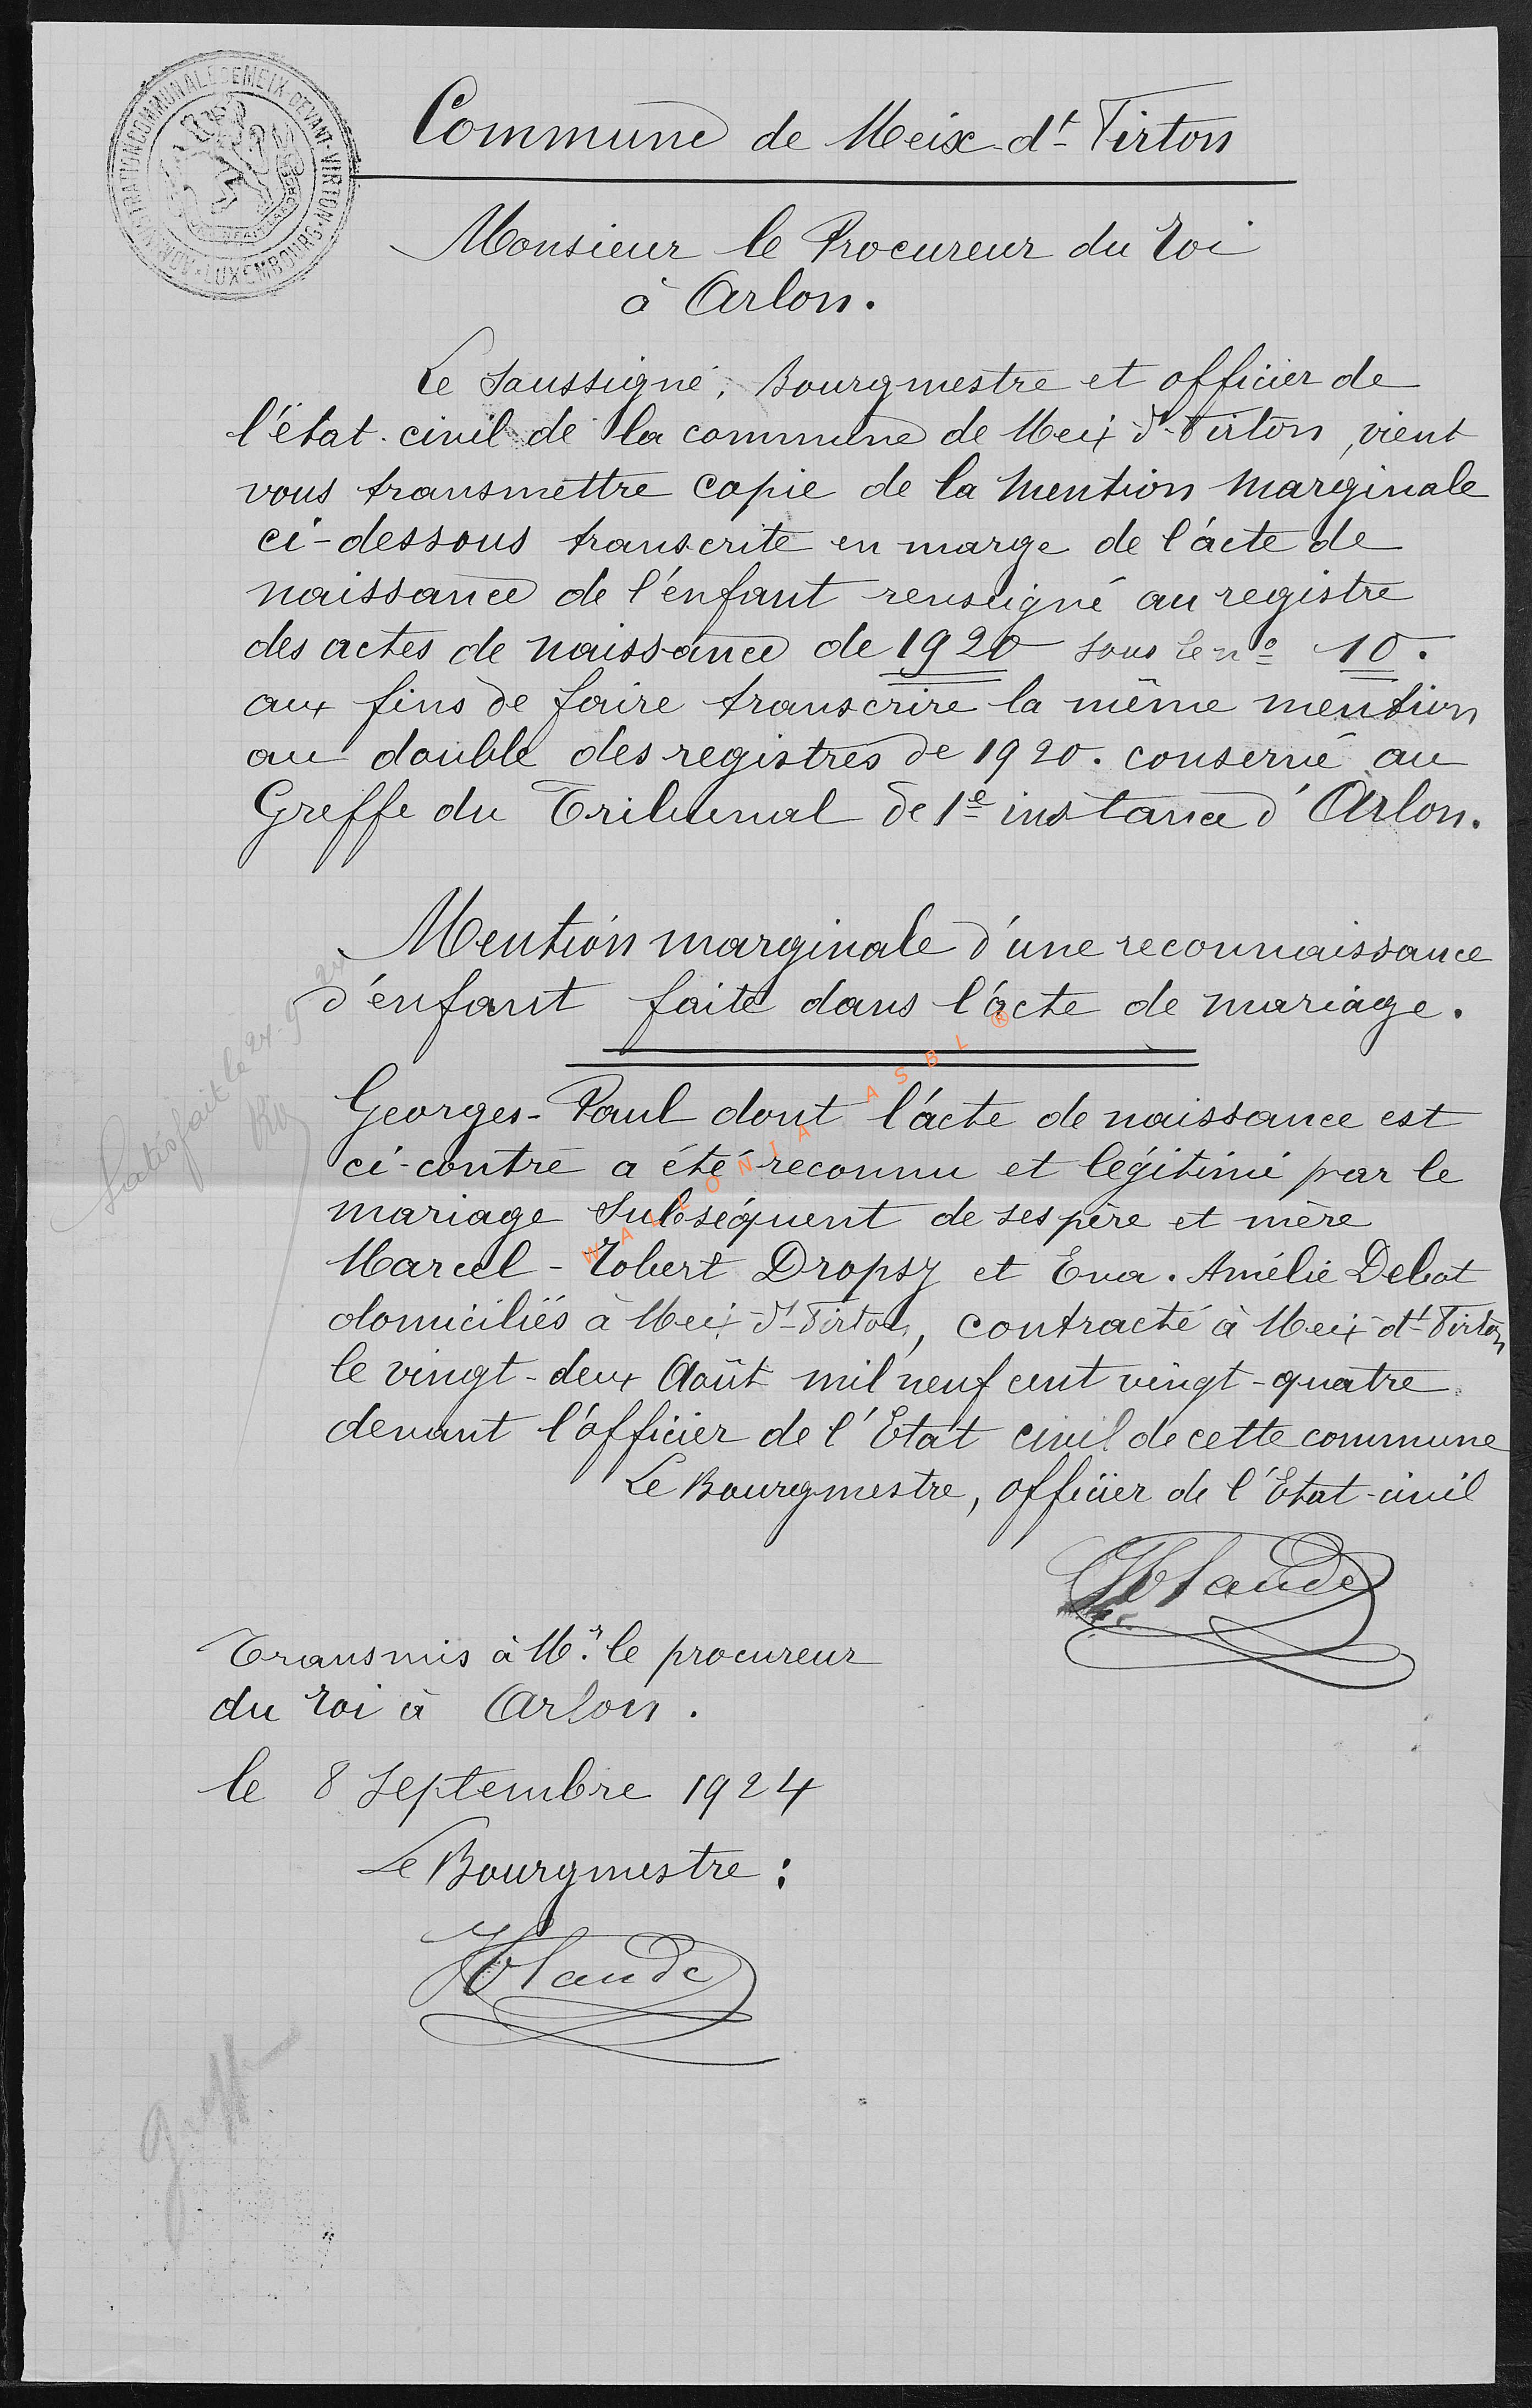 ADMINISTRATION COMMUNALE DE MEIX-DEVANT-VIRTON · LUXEMBOURG
Commune de Meix-dt-Virton
Monsieur le Procureur du Roi
à Arlon.
Le Soussigné, Bourgmestre et officier de
l'état-civil de la commune de Meix-dt-Virton, vient
vous transmettre copie de la mention marginale
ci-dessous transcrite en marge de l'acte de
naissance de l'enfant renseigné au registre
des actes de naissance de 1920 sous le no 10.
aux fins de faire transcrire la même mention
au double des registres de 1920. conservé au
Greffe du Tribunal de 1e instance d'Arlon.
Mention marginale d'une reconnaissance
d'enfant faite dans l'acte de mariage.
Satisfait le 24.9.24
Georges-Paul dont l'acte de naissance est
ci-contre a été reconnu et légitimé par le
mariage subséquent de ses père et mère
Marcel-Robert Dropsy et Eva. Amélie Debat
domiciliés à Meix-dt-Virton, contracté à Meix-dt-Virton
le vingt-deux Août mil neuf cent vingt-quatre
devant l'officier de l'Etat civil de cette commune
Le Bourgmestre, officier de l'Etat-civil
Transmis à Mr. le procureur
du Roi à Arlon.
le 8 Septembre 1924
Le Bourgmestre:
Greffe
WALLONIA ASBL ®